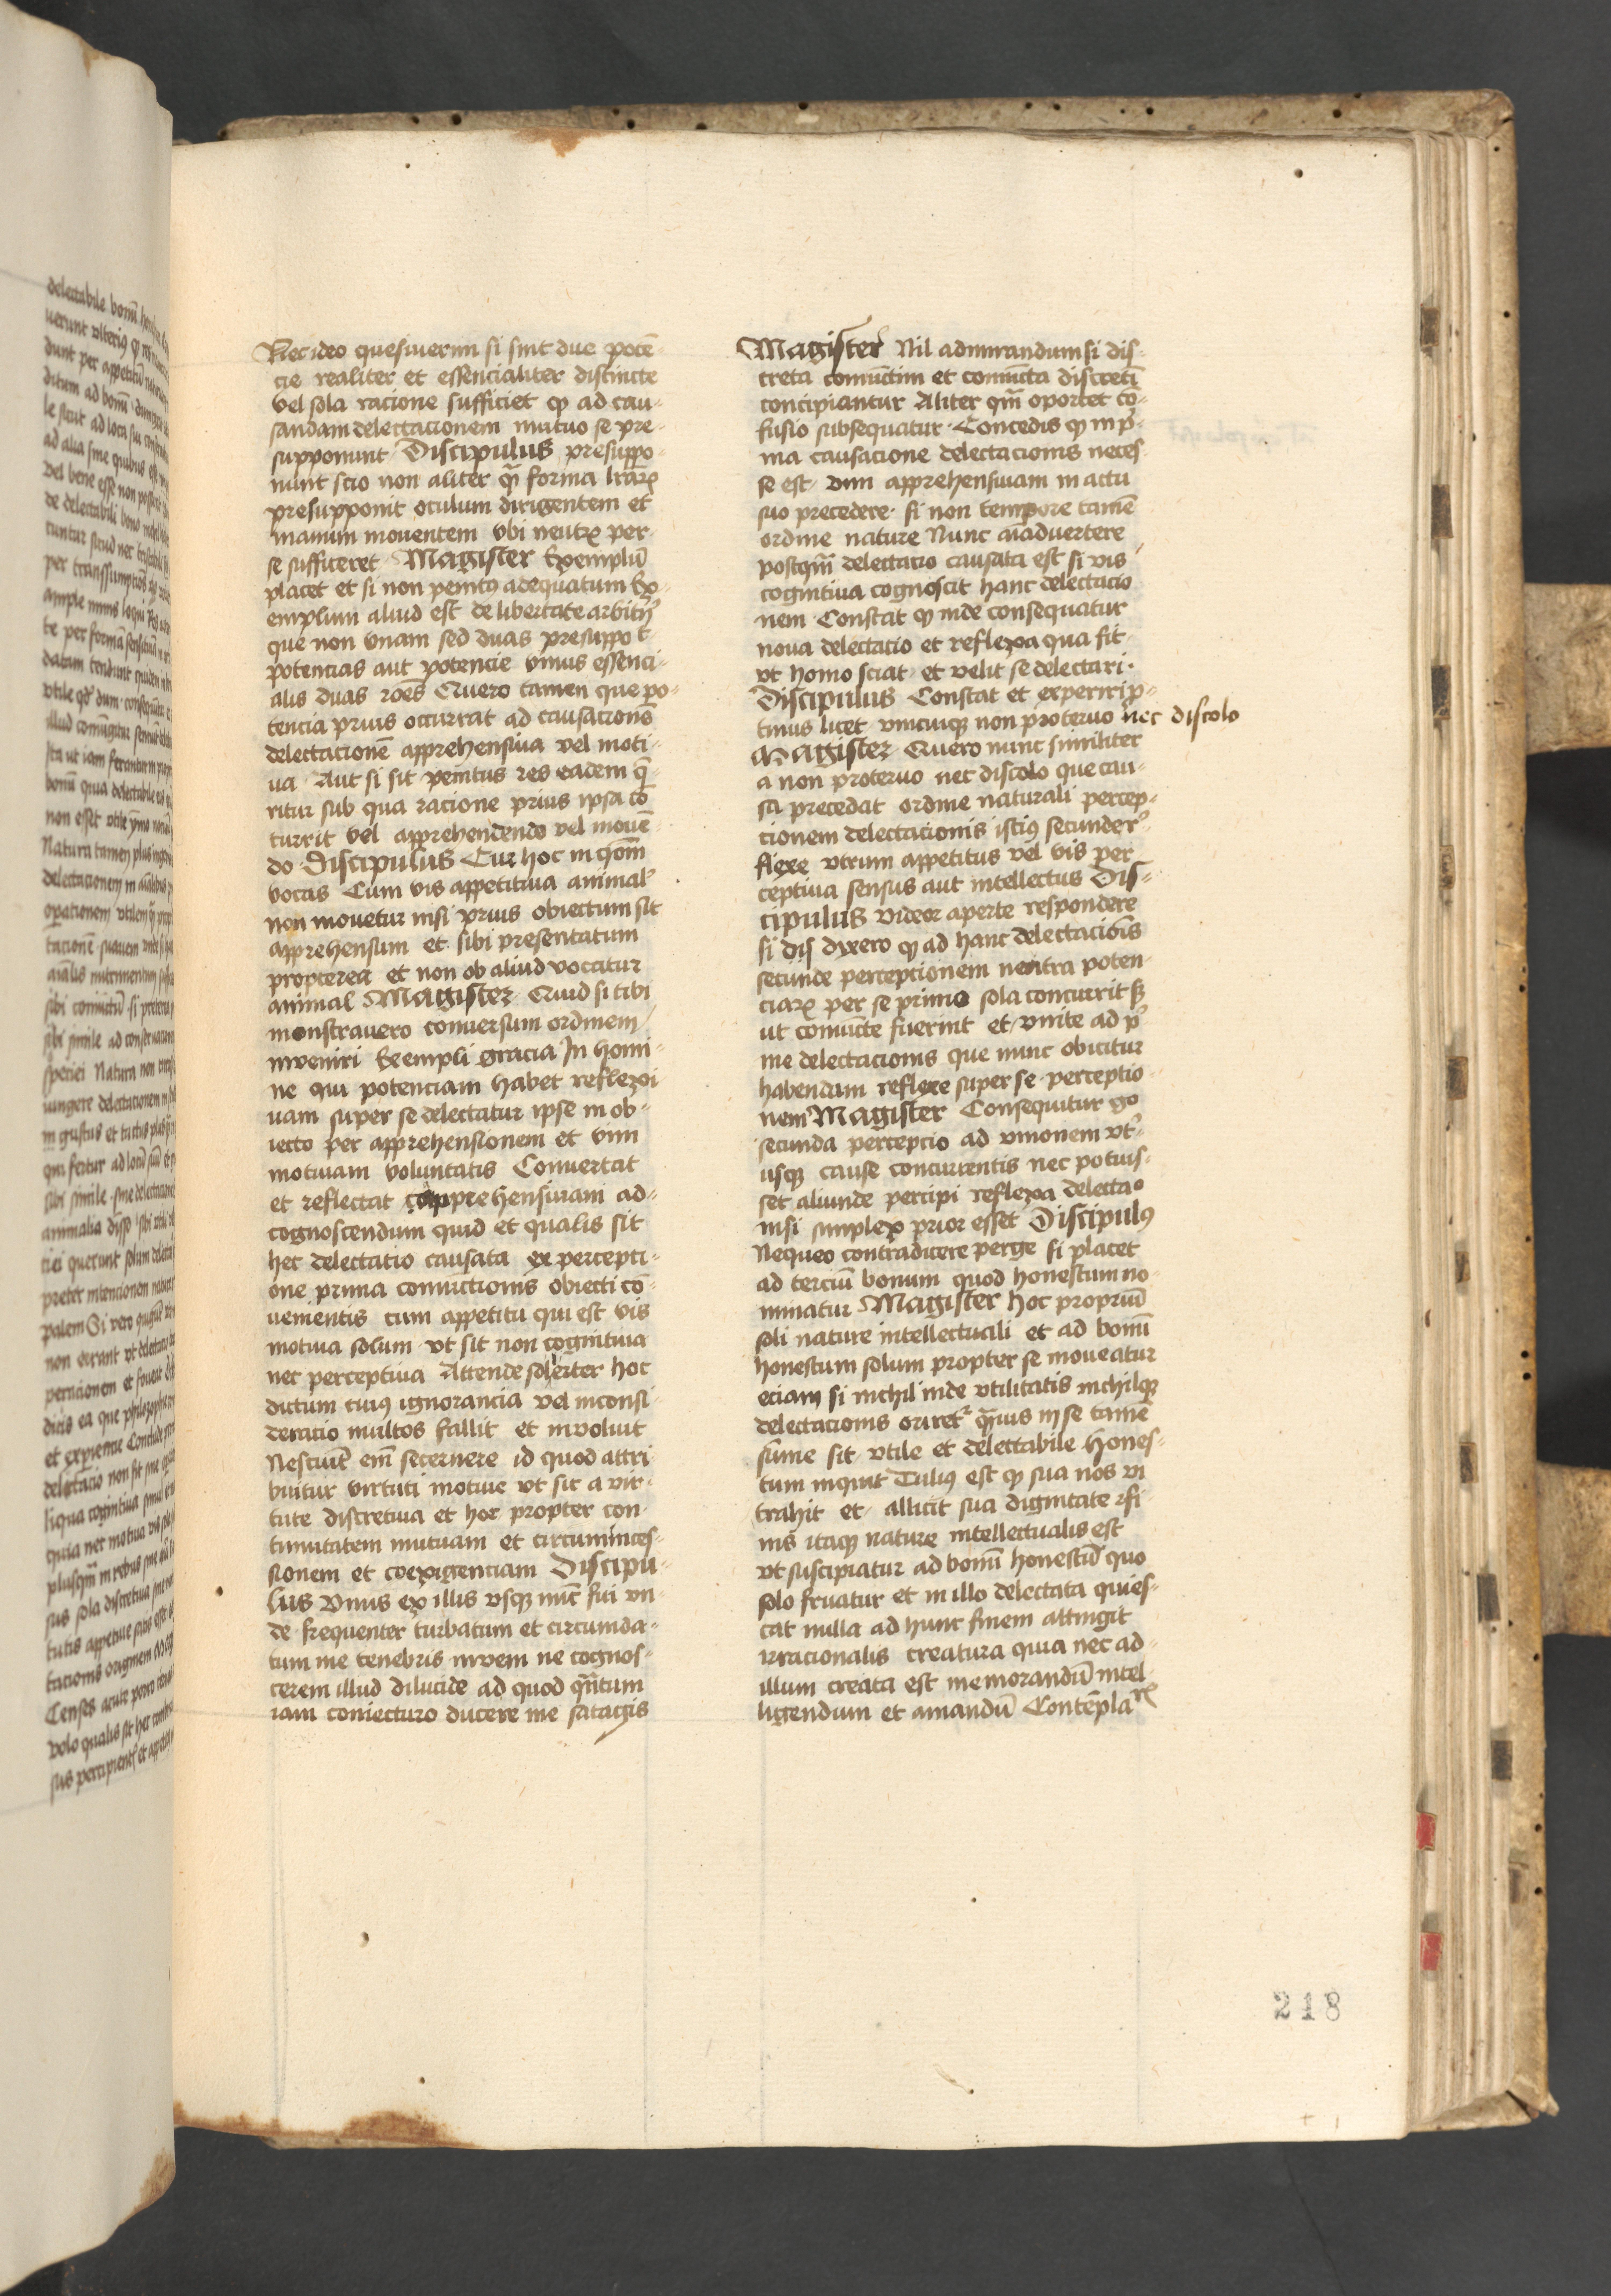 Nec ideo quesiuerim si sint due poten̄-
cie realiter et essencialiter distincte
vel sola racione sufficiet ꝙ ad cau-
sandam delectacionem mutuo se pre-
supponunt Discipulus presuppo-
nunt scio non aliter ꝙ̄ forma lr̄arꝝ
presupponit oculum dirigentem et
manum mouentem vbi neutrꝝ per
se sufficeret Magister Exemplū
placet et si non penitꝰ adequatum Ex-
emplum aliud est de libertate arbitrij
que non vnam sed duas presuppo t
potencias aut potencie vnius essenci-
alis duas rōes Quero tamen que po-
tencia prius occurrat ad causacionē
delectacionē apprehensiua vel moti-
ua Aut si sit penitus res eadem q̄-
ritur sub qua racione prius ipsa cō
currit vel apprehendendo vel mouē-
do Discipulus Cur hoc in q̄om̄
vocas Cum vis appetitiua animal'
non mouetur nisi prius obiectum sit
apprehensum et sibi presentatum
propterea et non ob aliud vocatur
animal Magister Quid si tibi
monstrauero conuersum ordinem
inveniri Exempli gracia In homi-
ne qui potenciam habet reflexi
uam super se delectatur ipse in ob-
iecto per apprehensionem et vim
motiuam voluntatis Conuertat
et reflectat apprehensiuam ad-
cognoscendum quid et qualis sit
hec delectatio causata ex percepti-
one prima coniunctionis obiecti cō-
uenientis cum appetitu qui est vis
motiua solum vt sit non cognitiua
nec perceptiua Attende solerter hoc
dictum cuiꝰ ignorancia vel inconsi-
deratio multos fallit et involuit
Nesciūt em̄ secernere id quod attri
buitur virtuti motiue vt sic a vir-
tute discretiua et hoc propter con-
tinuitatem mutuam et circuminces-
sionem et coexigenciam Discipu-
lus Vnus ex illis vsqꝫ nūc fui vn-
de frequenter turbatum et circumda-
tum me tenebris inveni ne cognos-
cerem illud dilucide ad quod q̄ntum
iam coniecturo ducere me satagis
Magister Nil admirandum si dis-
creta coniunctim et coniuncta discretī
concipiantur Aliter qm̄ oportet cō-
fusio subsequatur Concedis ꝙ in p̄-
ma causacione delectacionis neces
se est vim apprehensiuam in actu
suo precedere si non tempore tamē
ordine nature Nunc aīaduertere
postqm̄ delectatio causata est si vis
cognitiua cognoscit hanc delectacio
nem Constat ꝙ inde consequatur
noua delectacio et reflexa qua fit
vt homo sciat et velit se delectari
Discipulus Constat et experirip-
timus licet vnicuiqꝫ non proteruo nec discolo
Magister Quero nunc similiter
a non proteruo nec discolo que cau-
sa precedat ordine naturali percep-
cionem delectacionis istiꝰ secunde r̄-
flexe vtrum appetitus vel vis per
ceptiua sensus aut intellectus Dis-
cipulus videor aperte respondere
si dis dixero ꝙ ad hanc delectacionis
secunde perceptionem neutra poten-
ciarꝝ per se primo sola concurrit sꝫ
ut coniuncte fuerint et vnite ad p̄-
me delectacionis que nunc obicitur
habendam reflexe super se perceptio-
nem Magister Consequitur gͦ
secunda perceptio ad vnionem vt-
iusqꝫ cause concurrentis nec potuis-
set aliunde percipi reflexa delectaͦ
nisi simplex prior esset Discipulꝰ
Nequeo contradicere perge si placet
ad terciū bonum quod honestum no-
minatur Magister hoc propriū
soli nature intellectuali et ad bonū
honestum solum propter se moueatur
eciam si nichil inde vtilitatis nichilqꝫ
delectacionis oriretʳ q̄uis in se tamē
sūme sit vtile et delectabile hones-
tum inquit Tuliꝰ est ꝙ sua nos vi
trahit et allicit sua dignitate fi
nis itaqꝫ nature intellectualis est
vt suscipiatur ad bonū honestū quo
solo fruatur et in illo delectata quies-
cat nulla ad hunc finem attingit
irracionalis creatura quia nec ad-
illum creata est memorandū intel-
ligendum et amandū Contēpla
218